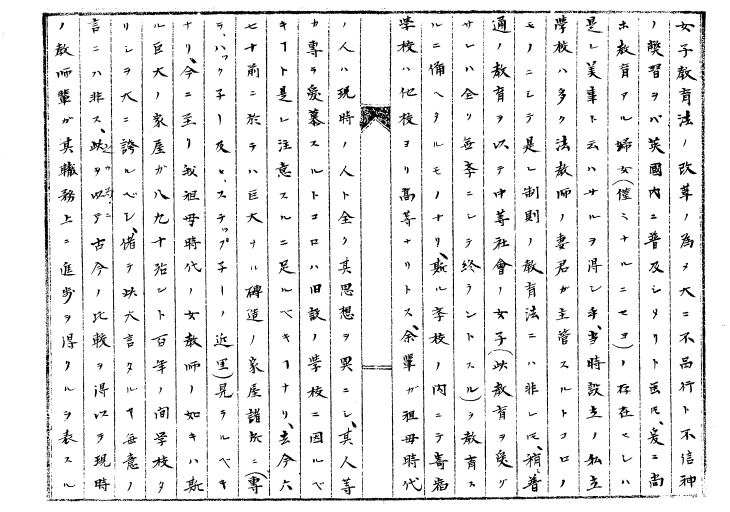 女子教育法ノ改革ノ為メ大ニ不品行ト不信神
ノ弊習ヲバ英國内ニ普及シタリト虽𪜈、爰ニ尚
ホ教育アル婦女(僅ミナルニセヨ)ノ存在セシハ
是レ美事ト云ハサルヲ得レ乎、当時設立ノ私立
學校ハ多ク法教師ノ妻君ガ主管スルトコロノ
モノニシテ是レ制則ノ教育法ニハ非レ𪜈、稍普
通ノ教育ヲ以テ中等社會ノ女子(此教育ヲ受ケ
サレハ全ク無學ニシテ終ラントスル)ヲ教育ス
ルニ備ヘタルモノナリ、斯ル学校ノ内ニテ寄宿
學校ハ他校ヨリ高等ナリトス、余輩ガ祖母時代
ノ人ハ現時ノ人ト全ク其思想ヲ異ニシ、其人等
カ専ラ愛慕スルトコロハ旧設ノ學校ニ因ルベ
キヿト是レ注意スルニ足ルベキヿナリ、去今六
七十前ニ於テハ巨大ナル磚造ノ家屋諸所ニ(専
ラ、ハック子ー及ヒ、ステップ子ーノ近里)見ラルベキ
ナリ、今ニ至リ我祖母時代ノ女教師ノ如キハ斯
ル巨大ノ家屋ガ八九十殆ント百年ノ間学校タ
リシヲ大ニ誇ルベシ、偖テ此大言タルヤ無意ノ
言ニハ非ス、此ヲ以テ古今ノ比較ヲ得以テ現時
ノ教師輩ガ其職務上ニ進歩ヲ得タルヲ表スル